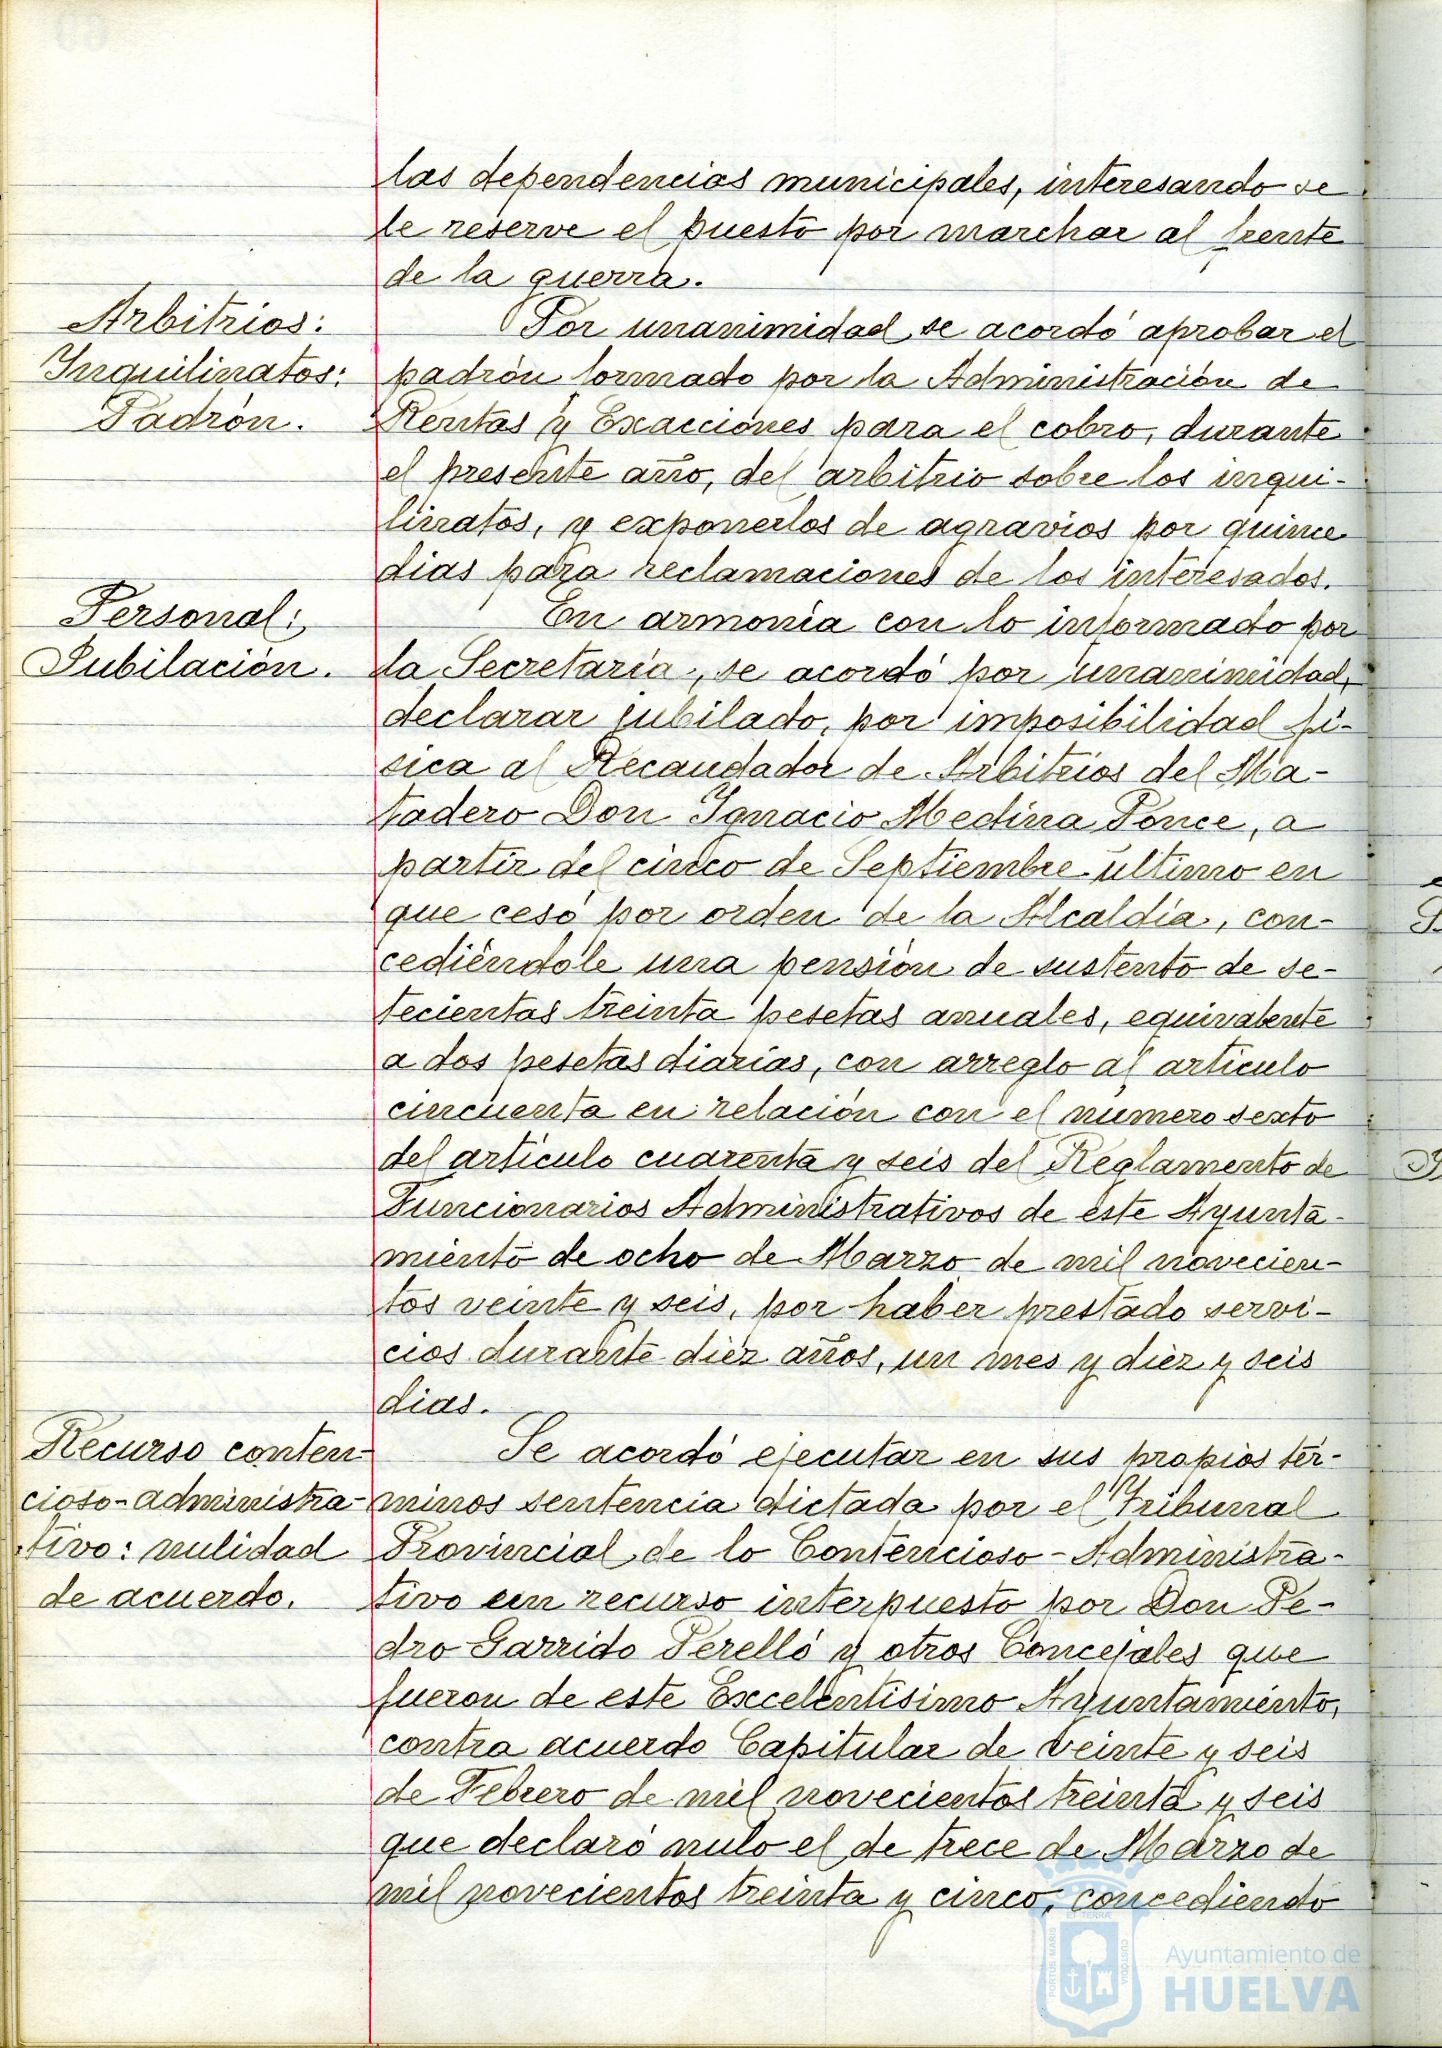 las dependencias municipales, interesando se
le reserve el puesto por marchar al frente
de la guerra.
Arbitrios:
Inquilinatos:
Padrón.
Por unanimidad se acordó aprobar el
padrón formado por la Administración de
Rentas y Exacciones para el cobro, durante
el presente año, del arbitrio sobre los inqui-
linatos, y exponerlos de agravios por quince
dias para reclamaciones de los interesados.
Personal:
Jubilación.
En armonía con lo informado por
la Secretaría, se acordó por unanimidad,
declarar jubilado, por imposibilidad fí-
sica al Recaudador de Arbitrios del Ma-
tadero Don Ignacio Medina Ponce, a
partir del cinco de Septiembre último en
que cesó por orden de la Alcaldía, con-
cediéndole una pensión de sustento de se-
tecientas treinta pesetas anuales, equivalente
a dos pesetas diarias, con arreglo al artículo
cincuenta en relación con el número sexto
del artículo cuarenta y seis del Reglamento de
Funcionarios Administrativos de este Ayunta-
miento de ocho de Marzo de mil novecien-
tos veinte y seis, por haber prestado servi-
cios durante diez años, un mes y diez y seis
dias.
Recurso conten-
cioso-administra-
tivo: nulidad
de acuerdo.
Se acordó ejecutar en sus propios tér-
minos sentencia dictada por el Tribunal
Provincial de lo Contencioso-Administra-
tivo en recurso interpuesto por Don Pe-
dro Garrido Perelló y otros Concejales que
fueron de este Excelentísimo Ayuntamiento,
contra acuerdo Capitular de veinte y seis
de Febrero de mil novecientos treinta y seis
que declaró nulo el de trece de Marzo de
mil novecientos treinta y cinco, concediendo
PORTUS MARIS
ET TERRA
CUSTODIA
Ayuntamiento de
HUELVA